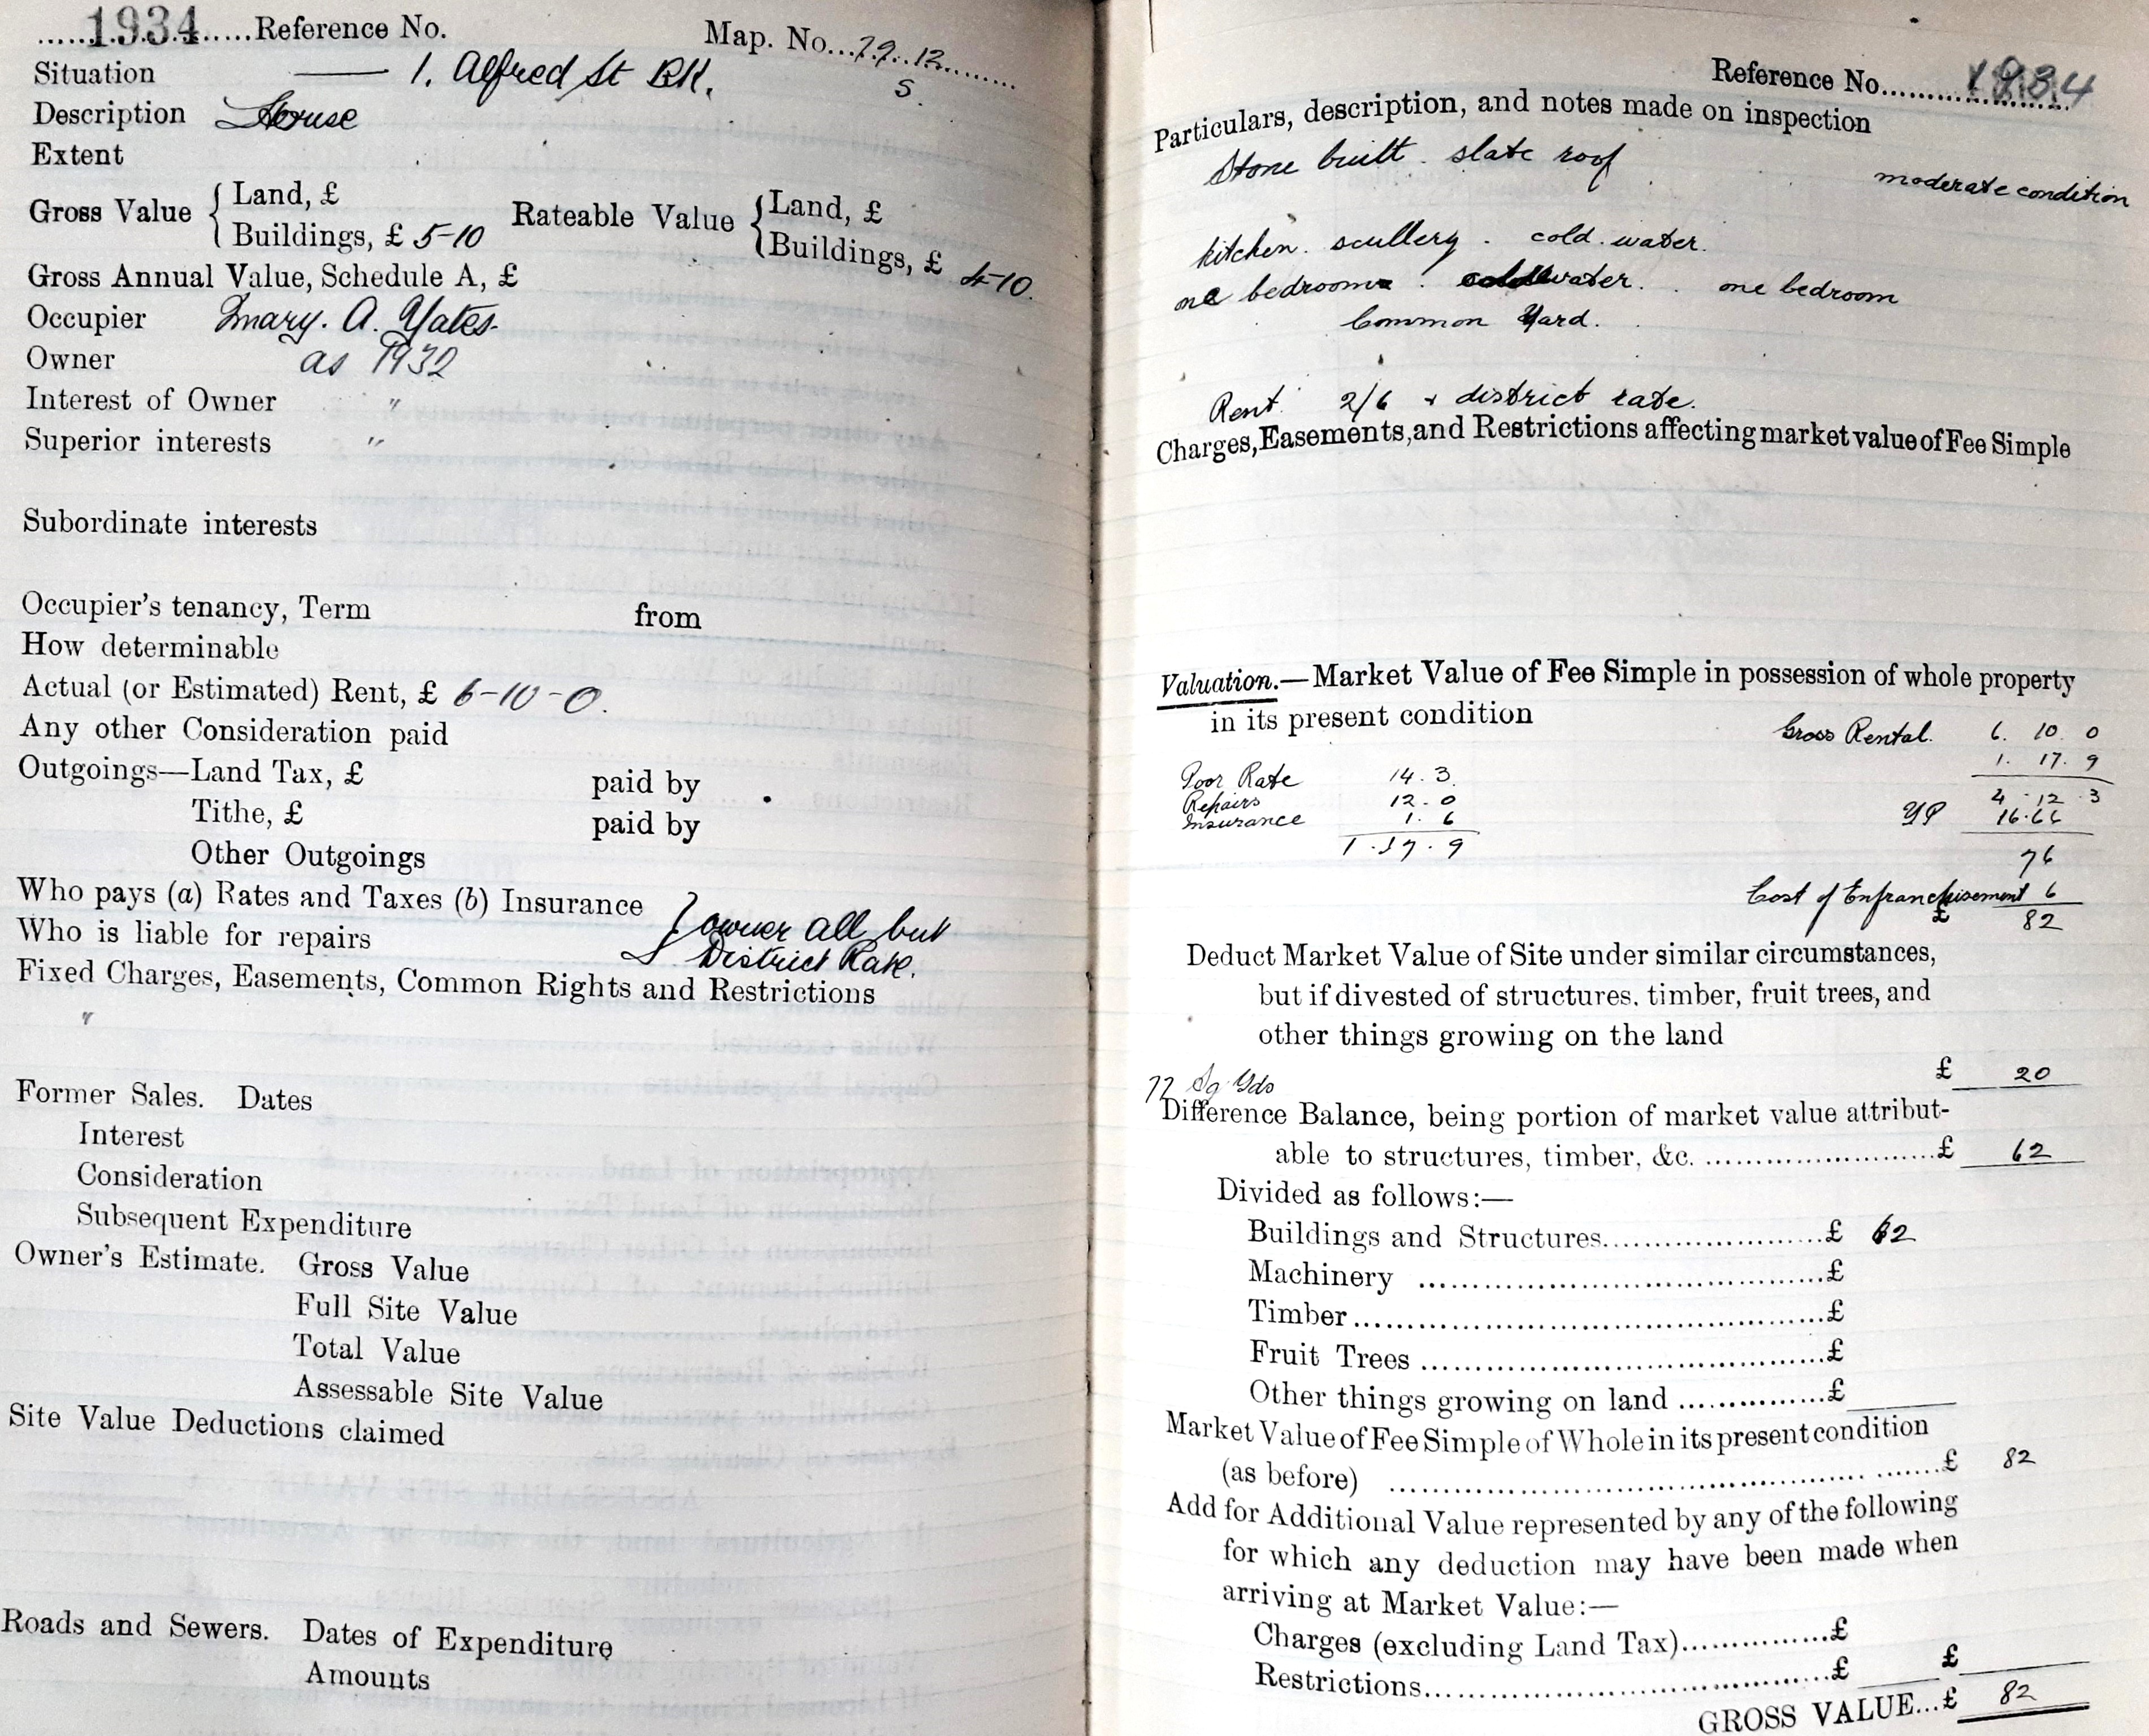 .....1934.....Reference No. Map. No...79.12.......
Situation —— 1. Alfred St BK. S.
Description House
Extent
Gross Value { Land, £ Rateable Value { Land, £
Buildings, £ 5-10 Buildings, £ 4-10.
Gross Annual Value, Schedule A, £
Occupier Mary. A. Yates
Owner as 1932
Interest of Owner "
Superior interests "
Subordinate interests
Occupier's tenancy, Term from
How determinable
Actual (or Estimated) Rent, £ 6-10-0.
Any other Consideration paid
Outgoings—Land Tax, £ paid by
Tithe, £ paid by
Other Outgoings
Who pays (a) Rates and Taxes (b) Insurance
Who is liable for repairs } owner all but
District Rate.
Fixed Charges, Easements, Common Rights and Restrictions
"
Former Sales. Dates
Interest
Consideration
Subsequent Expenditure
Owner's Estimate. Gross Value
Full Site Value
Total Value
Assessable Site Value
Site Value Deductions claimed
Roads and Sewers. Dates of Expenditure
Amounts
Reference No....1934
Particulars, description, and notes made on inspection
Stone built. slate roof moderate condition
kitchen. scullery. cold. water.
one bedroom. water. one bedroom
Common Yard.
Rent 2/6 + district rate.
Charges, Easements, and Restrictions affecting market value of Fee Simple
Valuation.—Market Value of Fee Simple in possession of whole property
in its present condition
Gross Rental. 6. 10. 0
1. 17. 9
Poor Rate 14. 3. 4. 12. 3
Repairs 12. 0 YP 16.66
Insurance 1. 6
1. 17. 9 76
Cost of Enfranchisement 6
£ 82
Deduct Market Value of Site under similar circumstances,
but if divested of structures, timber, fruit trees, and
other things growing on the land
£ 20
77 Sq Yds
Difference Balance, being portion of market value attribut-
able to structures, timber, &c. ........................£ 62
Divided as follows:—
Buildings and Structures........................£ 62
Machinery ........................£
Timber........................£
Fruit Trees ........................£
Other things growing on land ...............£
Market Value of Fee Simple of Whole in its present condition
(as before) ........................£ 82
Add for Additional Value represented by any of the following
for which any deduction may have been made when
arriving at Market Value:—
Charges (excluding Land Tax)...............£
Restrictions........................£ £
GROSS VALUE...£ 82